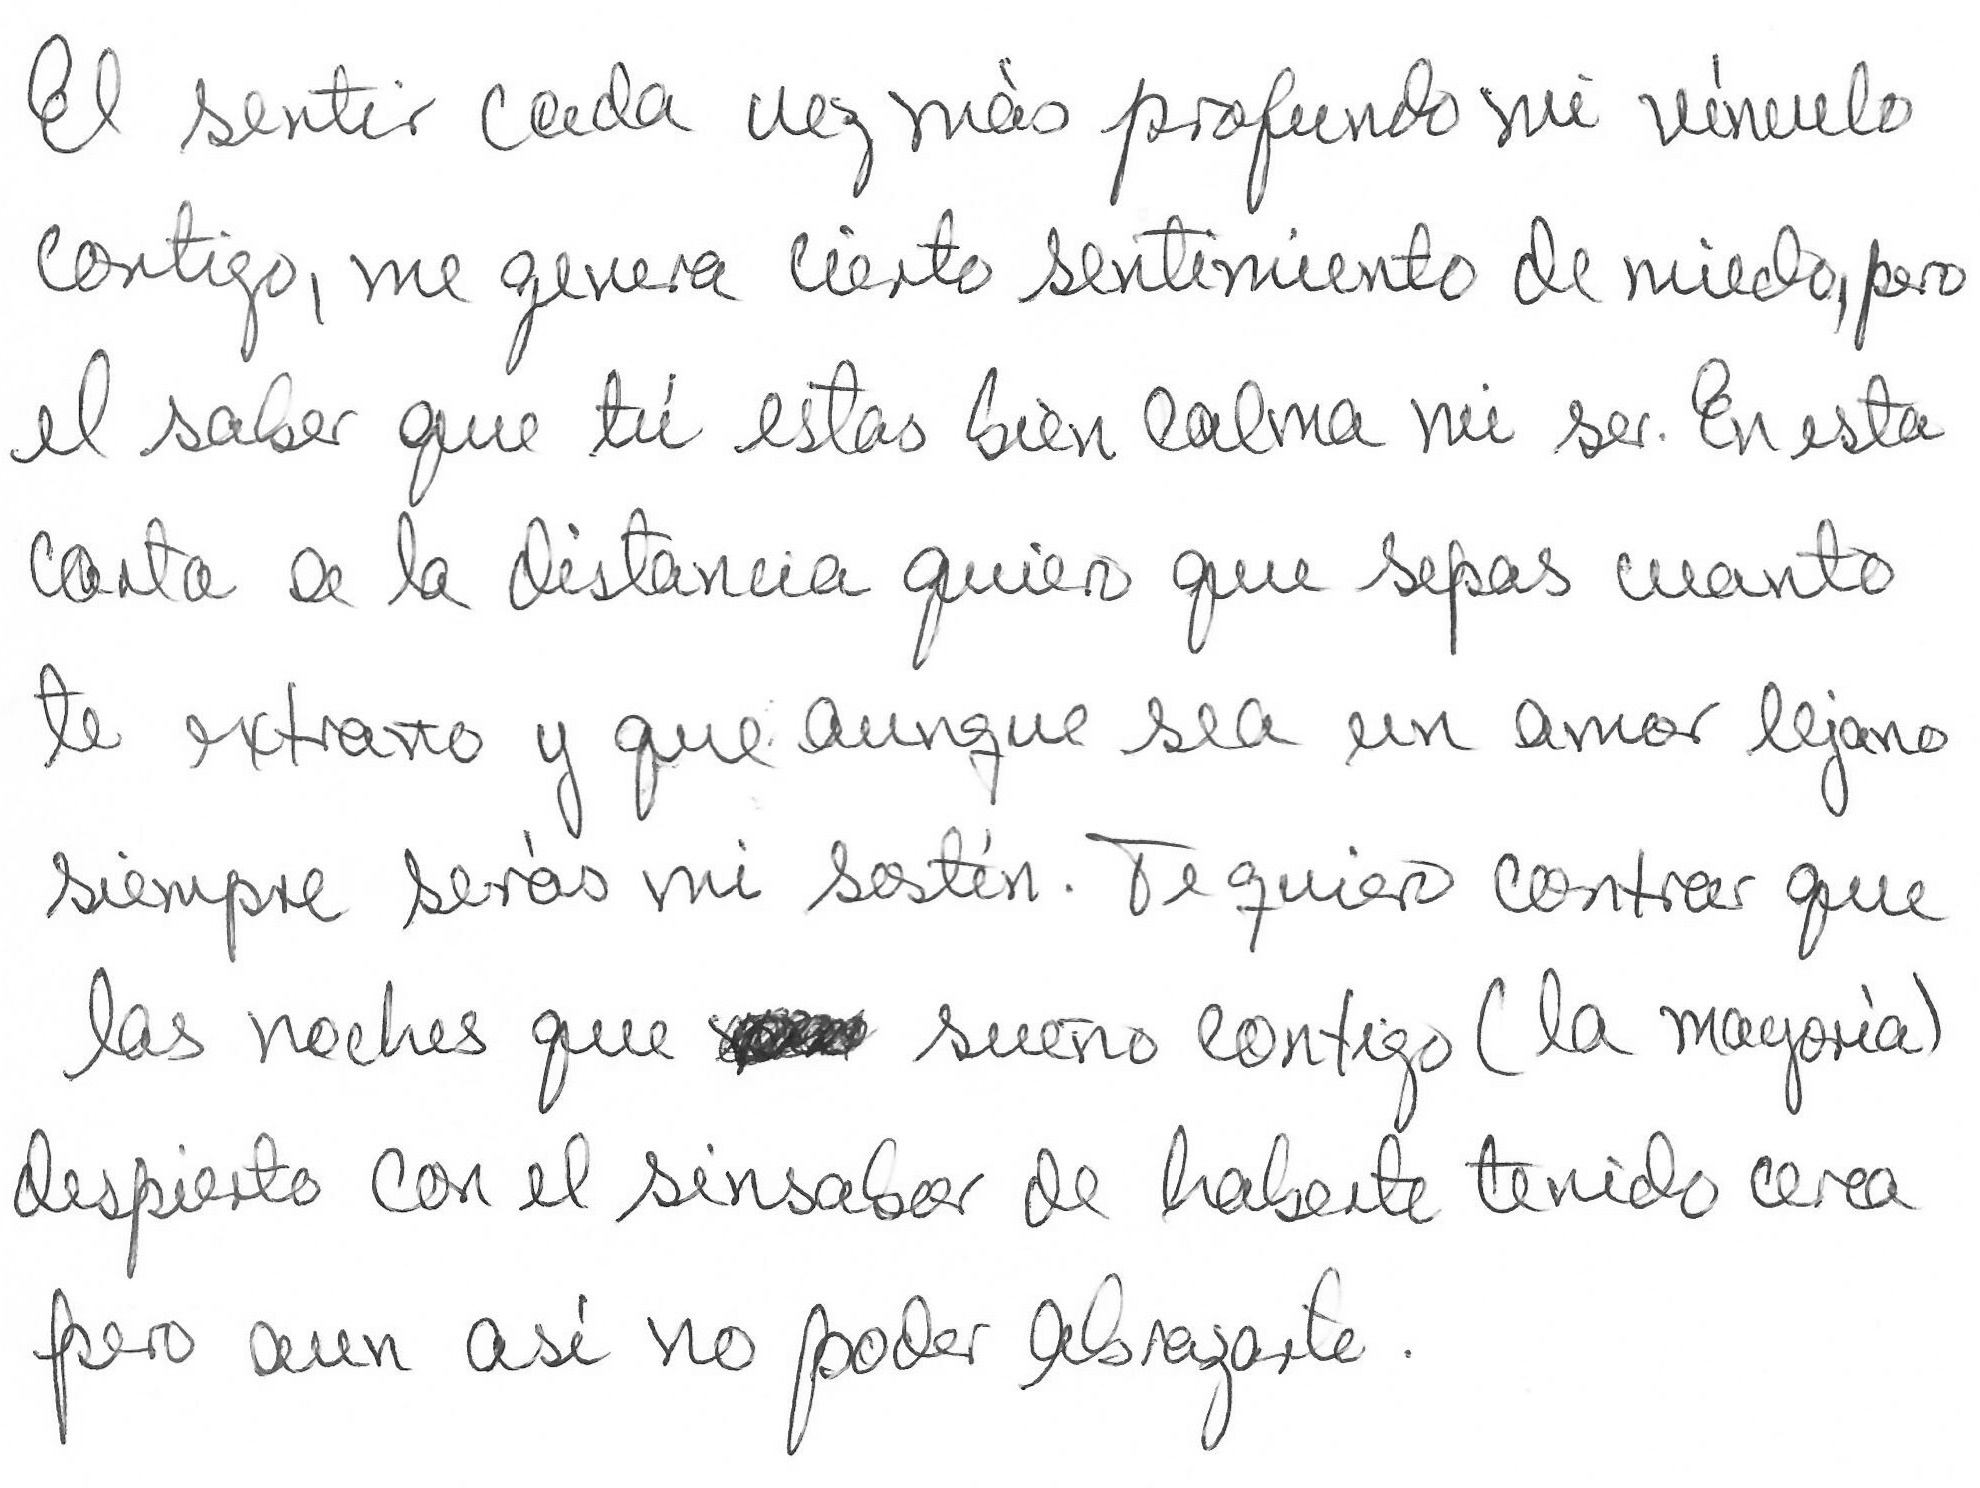 El sentir cada vez más profundo mi vínculo
contigo, me genera cierto sentimiento de miedo, pero
el saber que tú estas bien calma mi ser. En esta
carta a la distancia quiero que sepas cuanto
te extraño y que aunque sea un amor lejano
siempre serás mi sostén. Te quiero contrar que
las noches que sueño contigo (la mayoría)
despierto con el sinsabor de haberte tenido cerca
pero aun así no poder abrazarte.